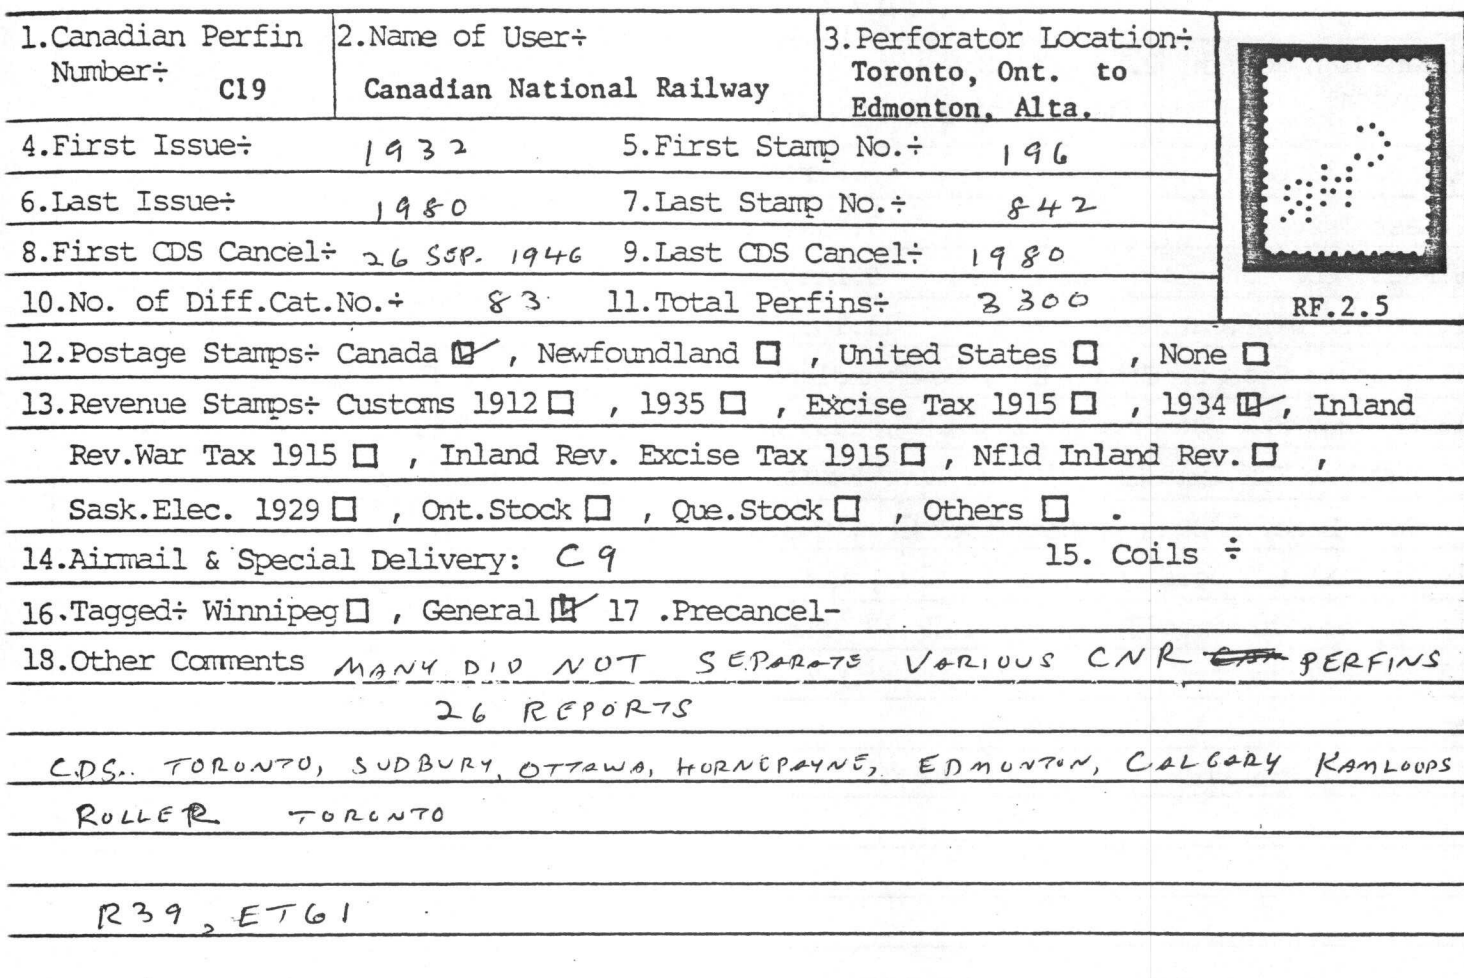 1.Canadian Perfin Number÷ C19
2.Name of User÷ Canadian National Railway
3.Perforator Location÷ Toronto, Ont. to Edmonton, Alta.
4.First Issue÷ 1932 5.First Stamp No.÷ 196
6.Last Issue÷ 1980 7.Last Stamp No.÷ 842
8.First CDS Cancel÷ 26 SEP. 1946 9.Last CDS Cancel÷ 1980
10.No. of Diff.Cat.No.÷ 83 11.Total Perfins÷ 3300
RF.2.5
12.Postage Stamps÷ Canada ☑, Newfoundland ☐, United States ☐, None ☐
13.Revenue Stamps÷ Customs 1912 ☐, 1935 ☐, Excise Tax 1915 ☐, 1934 ☑, Inland
Rev.War Tax 1915 ☐, Inland Rev. Excise Tax 1915 ☐, Nfld Inland Rev. ☐,
Sask.Elec. 1929 ☐, Ont.Stock ☐, Que.Stock ☐, Others ☐.
14.Airmail & Special Delivery: C9 15. Coils ÷
16.Tagged÷ Winnipeg ☐, General ☑ 17 .Precancel-
18.Other Comments MANY DID NOT SEPARATE VARIOUS CNR PERFINS
26 REPORTS
C.D.S. TORONTO, SUDBURY, OTTAWA, HORNEPAYNE, EDMONTON, CALGARY KAMLOOPS
ROLLER TORONTO
R39, ET61